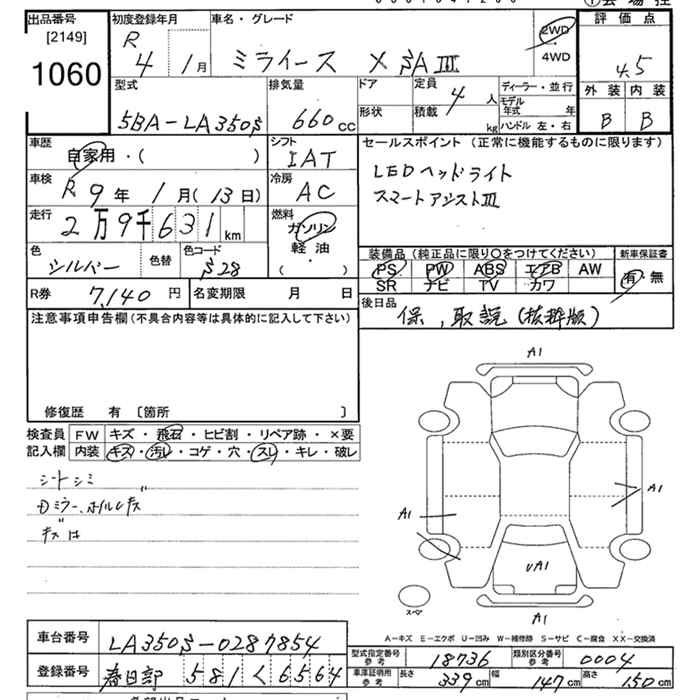 出品番号 初度登録年月 車名・グレード 2WD 評価点
[2149] R 4 1月 ミライース X SAⅢ 4WD 4.5
1060 型式 排気量 ドア 定員 4人 ディーラー・並行 外装 内装
5BA-LA350S 660cc 形状 積載 kg モデル年式 年 ハンドル 左・右 B B
車歴 自家用・( ) シフト IAT セールスポイント (正常に機能するものに限ります)
車検 R 9年 1月(13日) 冷房 AC LEDヘッドライト
スマートアシストⅢ
走行 2万9千631km 燃料 ガソリン
軽油
・( )
色 シルバー 色替 色コード S28 装備品 (純正品に限り○をつけてください) 新車保証書
PS PW ABS エアB AW 有・無
SR ナビ TV カワ
R券 7,140円 名変期限 月 日 後日品 保,取説(抜粋版)
注意事項申告欄(不具合内容等は具体的に記入して下さい)
修復歴 有 [箇所 ]
検査員 FW キズ・飛石・ヒビ割・リペア跡・×要
記入欄 内装 キズ・汚レ・コゲ・穴・スレ・キレ・破レ
シートシミ
Dミラー、ホイルCキズ
A1
A1
A1
UA1
スペア
A1
A-キズ E-エクボ U-凹み W-補修跡 S-サビ C-腐食 XX-交換済
車台番号 LA350S-0287854
登録番号 春日部 581 く 6564
型式指定番号 参考 18736 類別区分番号 参考 0004
車庫証明用 参考 長さ 339cm 幅 147cm 高さ 150cm